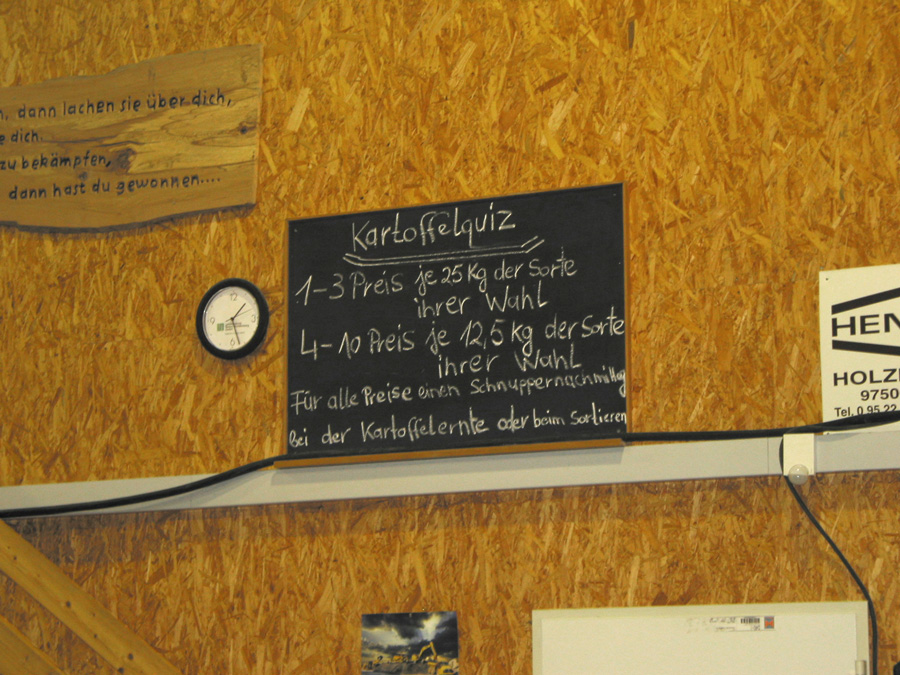 dann lachen sie über dich,
dich.
zu bekämpfen,
dann hast du gewonnen....
Kartoffelquiz
1-3 Preis je 25 Kg der Sorte
ihrer Wahl
4-10 Preis je 12,5 kg der Sorte
ihrer Wahl
Für alle Preise einen Schnuppernachmittag
Bei der Kartoffelernte oder beim Sortieren
HEN
HOLZ
9750
Tel. 0 95 22